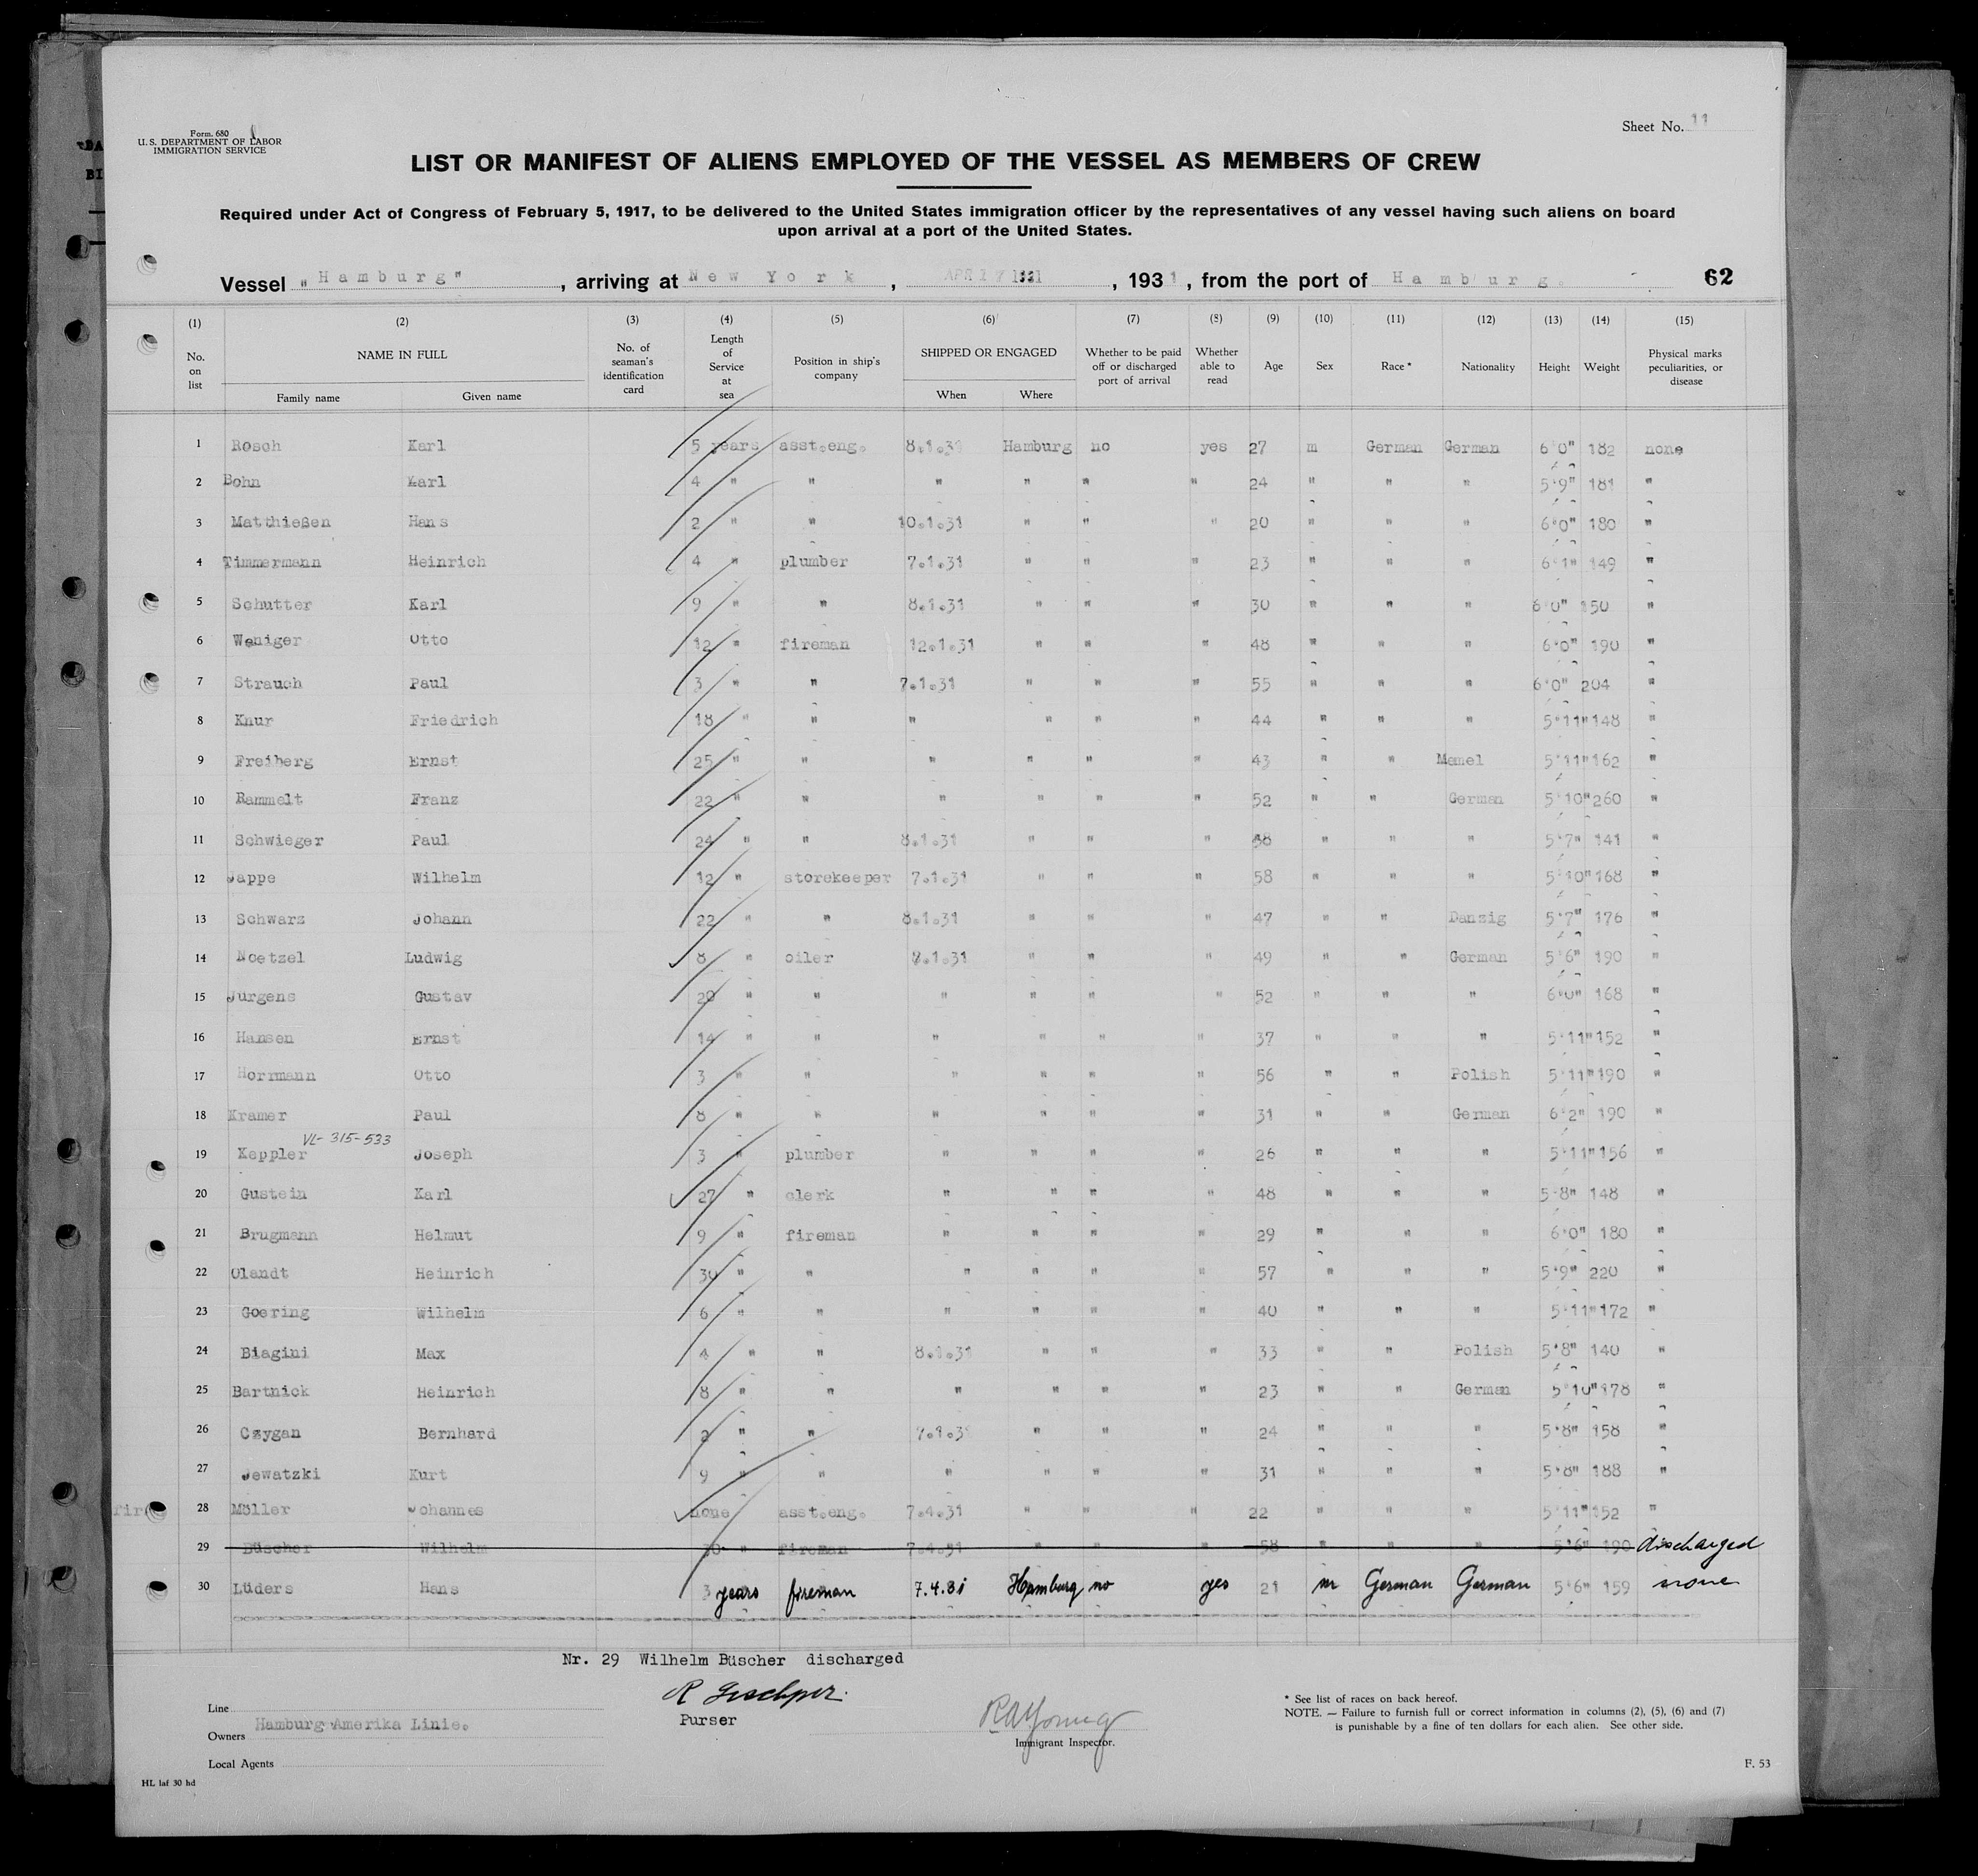 Form. 680
U. S. DEPARTMENT OF LABOR
IMMIGRATION SERVICE
Sheet No. 11
LIST OR MANIFEST OF ALIENS EMPLOYED OF THE VESSEL AS MEMBERS OF CREW
Required under Act of Congress of February 5, 1917, to be delivered to the United States immigration officer by the representatives of any vessel having such aliens on board
upon arrival at a port of the United States.
Vessel "Hamburg", arriving at New York, APR 17 1931, 1931, from the port of Hamburg. 62
(1) (2) (3) (4) (5) (6) (7) (8) (9) (10) (11) (12) (13) (14) (15)
No. on list NAME IN FULL Family name Given name No. of seaman's identification card Length of Service at sea Position in ship's company SHIPPED OR ENGAGED When Where Whether to be paid off or discharged port of arrival Whether able to read Age Sex Race * Nationality Height Weight Physical marks peculiarities, or disease
1 Rosch Karl 5 years asst.eng. 8.1.31 Hamburg no yes 27 m German German 6'0" 182 none
2 Bohn Karl 4 " " " " " " 24 " " " 5'9" 181 "
3 Matthießen Hans 2 " " 10.1.31 " " " 20 " " " 6'0" 180 "
4 Timmermann Heinrich 4 " plumber 7.1.31 " " " 23 " " " 6'1" 149 "
5 Schutter Karl 9 " " 8.1.31 " " " 30 " " " 6'0" 150 "
6 Weniger Otto 12 " fireman 12.1.31 " " " 48 " " " 6'0" 190 "
7 Strauch Paul 3 " " 7.1.31 " " " 55 " " " 6'0" 204 "
8 Knur Friedrich 18 " " " " " " 44 " " " 5'11" 148 "
9 Freiberg Ernst 25 " " " " " " 43 " " Memel 5'11" 162 "
10 Rammelt Franz 22 " " " " " " 52 " " German 5'10" 260 "
11 Schwieger Paul 24 " " 8.1.31 " " " " " " 5'7" 141 "
12 Jappe Wilhelm 12 " storekeeper 7.1.31 " " " 58 " " " 5'10" 168 "
13 Schwarz Johann 22 " " 8.1.31 " " " 47 " " Danzig 5'7" 176 "
14 Noetzel Ludwig 8 " oiler 7.1.31 " " " 49 " " German 5'6" 190 "
15 Jurgens Gustav 20 " " " " " " 52 " " " 6'0" 168 "
16 Hansen Ernst 14 " " " " " " 37 " " " 5'11" 152 "
17 Horrmann Otto 3 " " " " " " 56 " " Polish 5'11" 190 "
18 Kramer Paul 8 " " " " " " 31 " " German 6'2" 190 "
VL-315-533
19 Keppler Joseph 3 " plumber " " " " 26 " " " 5'11" 156 "
20 Gustein Karl 27 " clerk " " " " 48 " " " 5'8" 148 "
21 Brugmann Helmut 9 " fireman " " " " 29 " " " 6'0" 180 "
22 Olandt Heinrich 30 " " " " " " 57 " " " 5'9" 220 "
23 Goering Wilhelm 6 " " " " " " 40 " " " 5'11" 172 "
24 Biagini Max 4 " " 8.1.31 " " " 33 " " Polish 5'8" 140 "
25 Bartnick Heinrich 8 " " " " " " 23 " " German 5'10" 178 "
26 Czygan Bernhard 2 " " 7.1.31 " " " 24 " " " 5'8" 158 "
27 Jewatzki Kurt 9 " " " " " " 31 " " " 5'8" 188 "
28 Möller Johannes none asst.eng. 7.4.31 " " " 22 " " " 5'11" 152 "
29 Büscher Wilhelm 30 " fireman 7.4.31 " " " 58 " " " 5'6" 190 discharged
30 Lüders Hans 3 years fireman 7.4.31 Hamburg no yes 21 m German German 5'6" 159 none
Nr. 29 Wilhelm Büscher discharged
Purser
RA Young
Immigrant Inspector.
Line
Owners Hamburg Amerika Linie.
Local Agents
* See list of races on back hereof.
NOTE. — Failure to furnish full or correct information in columns (2), (5), (6) and (7)
is punishable by a fine of ten dollars for each alien. See other side.
HL laf 30 hd
F. 53